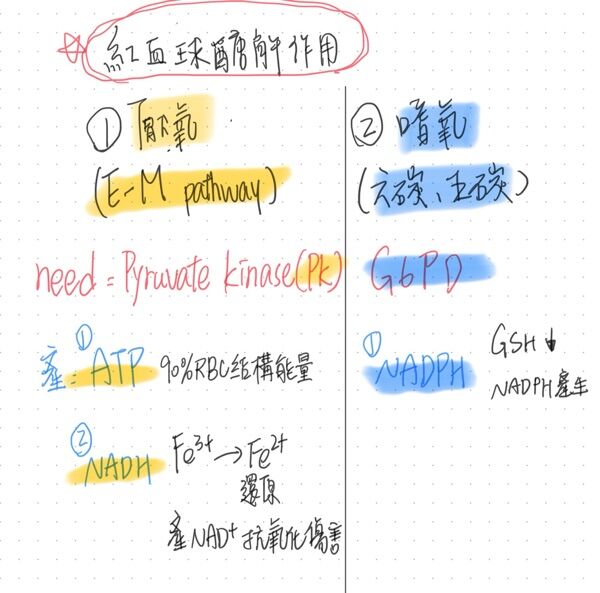 紅血球醣解作用
① 厭氧
(E-M pathway)
need = Pyruvate kinase(Pk)
產= ① ATP 90%RBC結構能量
② NADH Fe3+→Fe2+
還原
產NAD+抗氧化傷害
② 嗜氧
(六碳、五碳)
G6PD
① NADPH GSH↓
NADPH產生